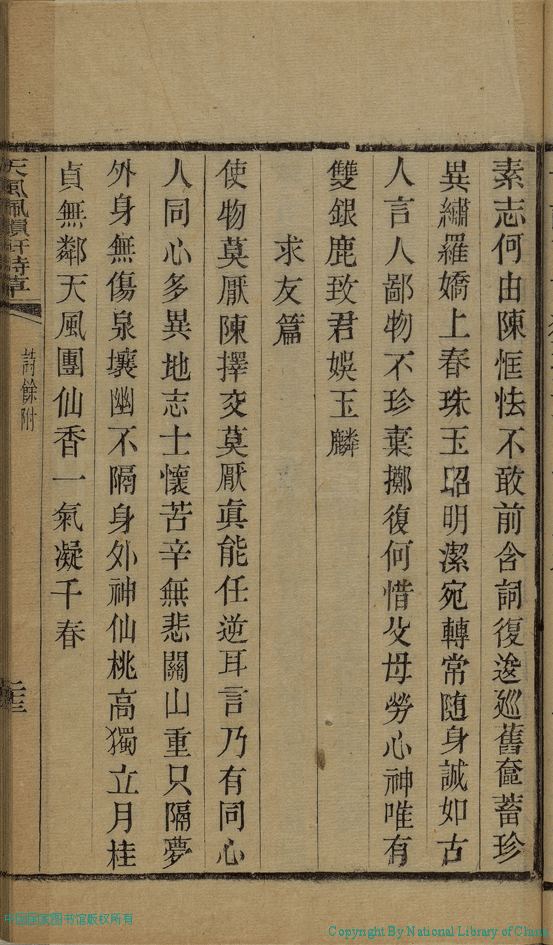 素志何由陳恇怯不敢前含詞復逡巡舊奩蓄珍
異繡羅嬌上春珠玉昭明潔宛轉常随身誠如古
人言人鄙物不珍棄擲復何惜父母勞心神唯有
雙銀鹿致君娛玉麟
求友篇
使物莫厭陳擇交莫厭真能任逆耳言乃有同心
人同心多異地志士懷苦辛無悲關山重只隔夢
外身無傷泉壤幽不隔身外神仙桃高獨立月桂
貞無鄰天風團仙香一氣凝千春
天風佩韻軒詩草
詩餘附
Copyright By National Library of China
中国国家图书馆版权所有